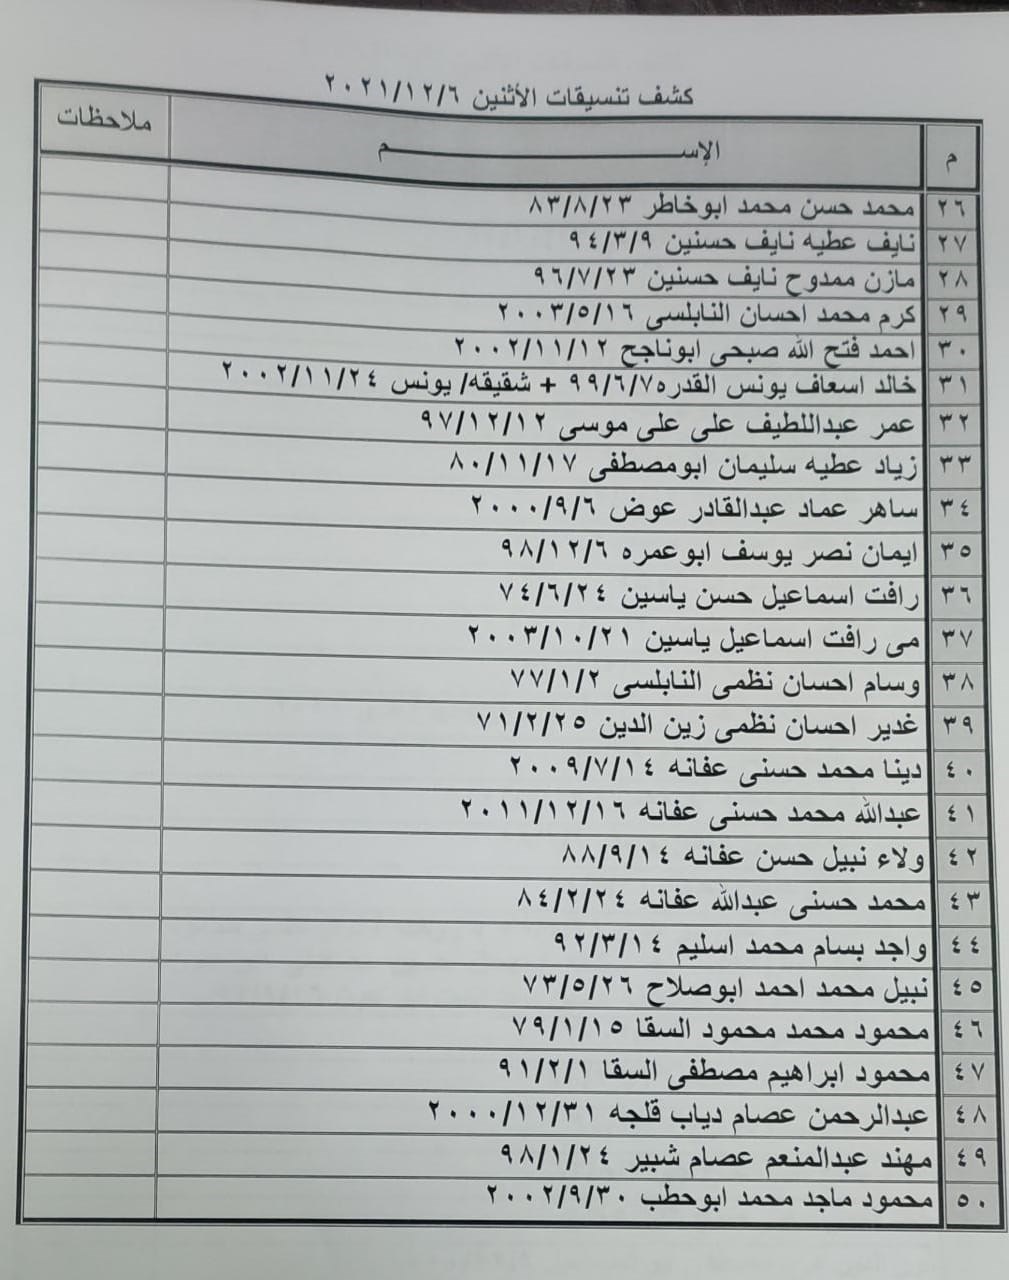 كشف تنسيقات الأثنين ٢٠٢١/١٢/٦
م الإســـــم ملاحظات
٢٦ محمد حسن محمد ابوخاطر ٨٣/٨/٢٣
٢٧ نايف عطيه نايف حسنين ٩٤/٣/٩
٢٨ مازن ممدوح نايف حسنين ٩٦/٧/٢٣
٢٩ كرم محمد احسان النابلسى ٢٠٠٣/٥/١٦
٣٠ احمد فتح الله صبحى ابوناجح ٢٠٠٢/١١/١٢
٣١ خالد اسعاف يونس القدره ٩٩/٦/٧ + شقيقه/ يونس ٢٠٠٢/١١/٢٤
٣٢ عمر عبداللطيف على على موسى ٩٧/١٢/١٢
٣٣ زياد عطيه سليمان ابومصطفى ٨٠/١١/١٧
٣٤ ساهر عماد عبدالقادر عوض ٢٠٠٠/٩/٦
٣٥ ايمان نصر يوسف ابوعمره ٩٨/١٢/٦
٣٦ رافت اسماعيل حسن ياسين ٧٤/٦/٢٤
٣٧ مى رافت اسماعيل ياسين ٢٠٠٣/١٠/٢١
٣٨ وسام احسان نظمى النابلسى ٧٧/١/٢
٣٩ غدير احسان نظمى زين الدين ٧١/٢/٢٥
٤٠ دينا محمد حسنى عفانه ٢٠٠٩/٧/١٤
٤١ عبدالله محمد حسنى عفانه ٢٠١١/١٢/١٦
٤٢ ولاء نبيل حسن عفانه ٨٨/٩/١٤
٤٣ محمد حسنى عبدالله عفانه ٨٤/٢/٢٤
٤٤ واجد بسام محمد اسليم ٩٢/٣/١٤
٤٥ نبيل محمد احمد ابوصلاح ٧٣/٥/٢٦
٤٦ محمود محمد محمود السقا ٧٩/١/١٥
٤٧ محمود ابراهيم مصطفى السقا ٩١/٢/١
٤٨ عبدالرحمن عصام دياب قلجه ٢٠٠٠/١٢/٣١
٤٩ مهند عبدالمنعم عصام شبير ٩٨/١/٢٤
٥٠ محمود ماجد محمد ابوحطب ٢٠٠٢/٩/٣٠